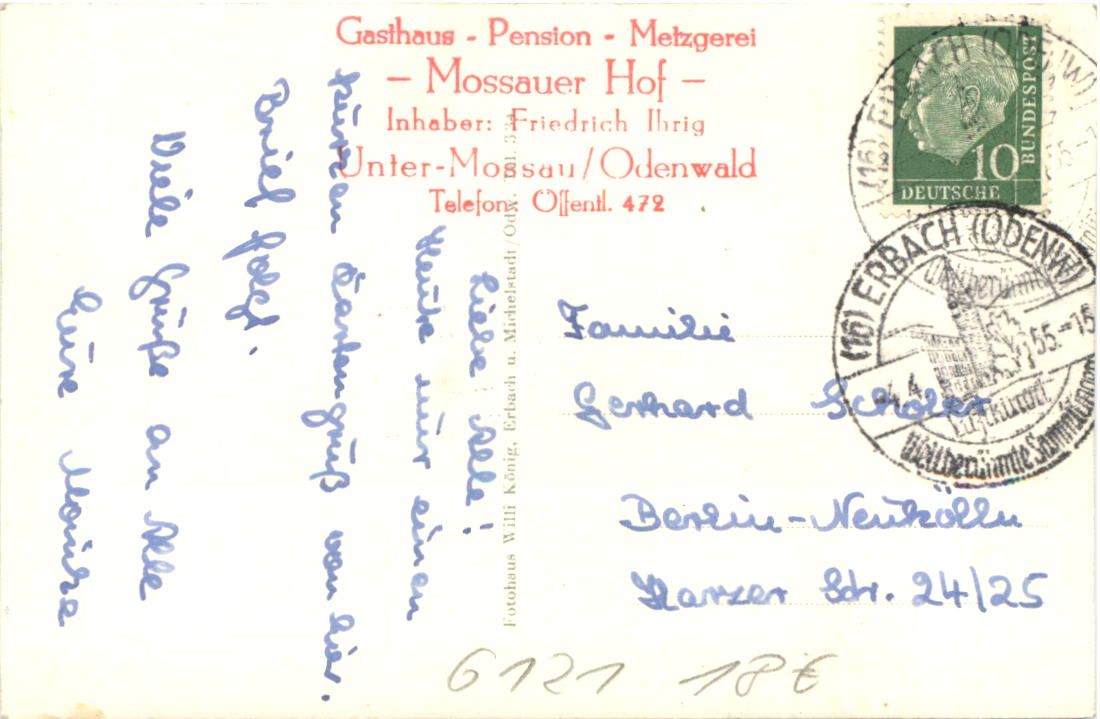 Gasthaus - Pension - Metzgerei
– Mossauer Hof –
Inhaber: Friedrich Ihrig
Unter-Mossau/Odenwald
Telefon: Öffentl. 472
Liebe Alle!
Heute nur einen
kurzen Kartengruß von hier.
Brief folgt.
Viele Grüße an Alle
Eure Monika
Fotohaus Willi König, Erbach u. Michelstadt/Odw.
10
BUNDESPOST
DEUTSCHE
(16) ERBACH (ODENW)
(16) ERBACH (ODENW)
-4.4.55.-15
Luftkurort
weltberühmte Sammlungen
Familie
Gerhard Scholer
Berlin-Neukölln
Harzer Str. 24/25
6121 18€